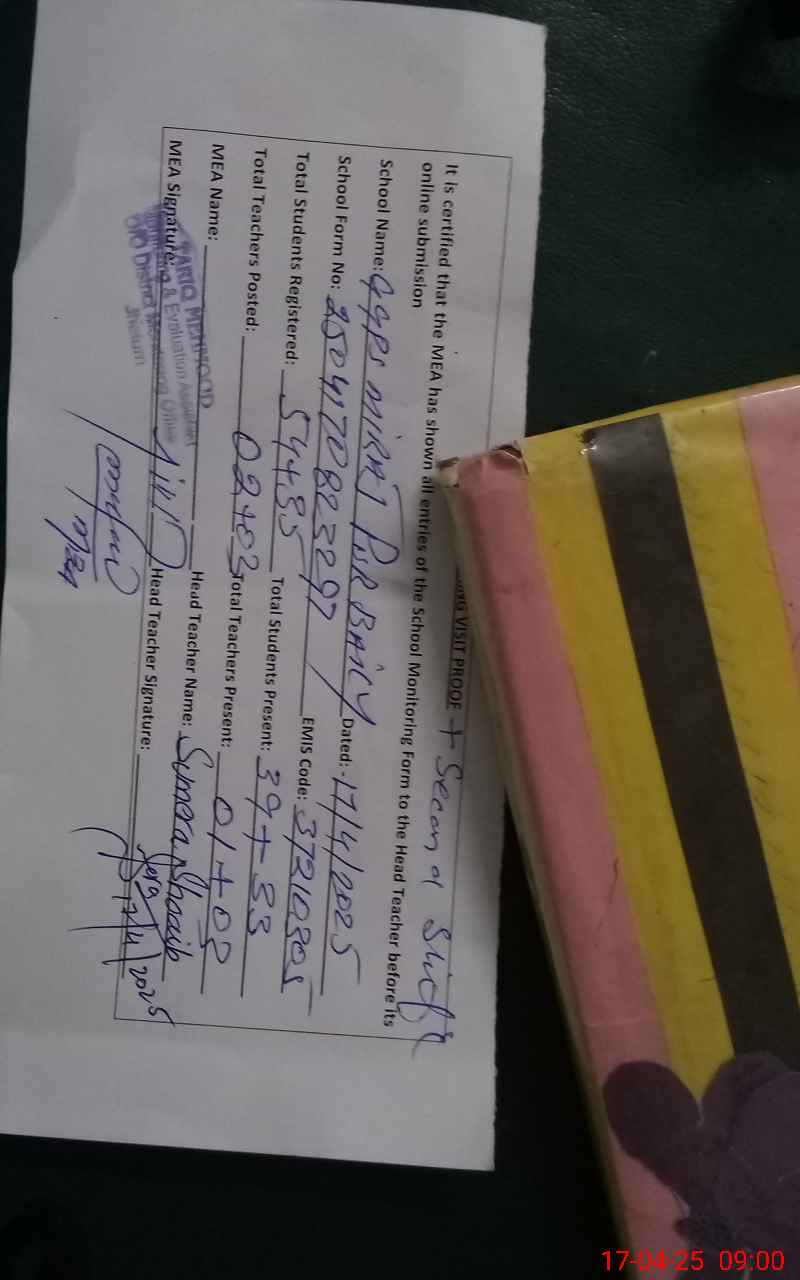 ING VISIT PROOF + Second Shift
It is certified that the MEA has shown all entries of the School Monitoring Form to the Head Teacher before its
online submission
School Name: GGPS MIRAJ PUR BAICY Dated: - 17/4/2025
School Form No: 2504170823297 EMIS Code: 37210305
Total Students Registered: 54+35 Total Students Present: 39+33
Total Teachers Posted: 02+03 Total Teachers Present: 01+03
MEA Name: Head Teacher Name: Sumera Shoaib
MEA Signature: Head Teacher Signature:
17/4/2025
TARIQ MEHMOOD
Monitoring & Evaluation Assistant
O/O District Monitoring Office
Jhelum
MEA
17-04-25 09:00